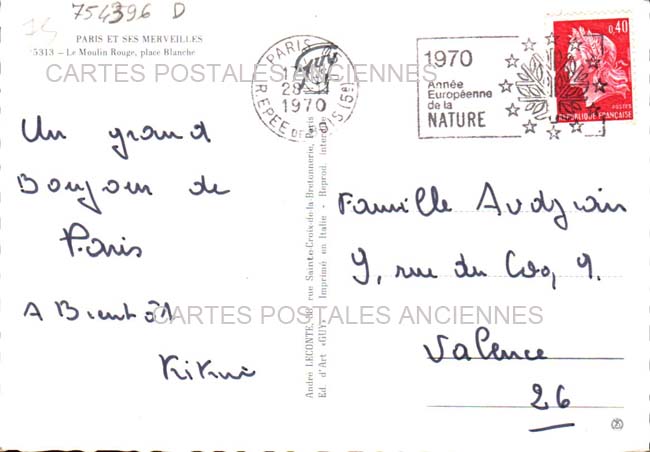 754396 D
PARIS ET SES MERVEILLES
5313 - Le Moulin Rouge, place Blanche
CARTES POSTALES ANCIENNES
PARIS
28
1970
R. EPEE DE (5e)
1970
Année
Européenne
de la
NATURE
0,40
POSTES
REPUBLIQUE FRANÇAISE
Un grand
Bonjour de
Paris
A Bientôt
Kikui
André LECONTE, 38, rue Sainte-Croix-de-la-Bretonnerie, Paris
Ed. d'Art «GUY» - Imprimé en Italie - Reprod. interdite
Famille
9, rue du Coq 9.
Valence
26
CARTES POSTALES ANCIENNES